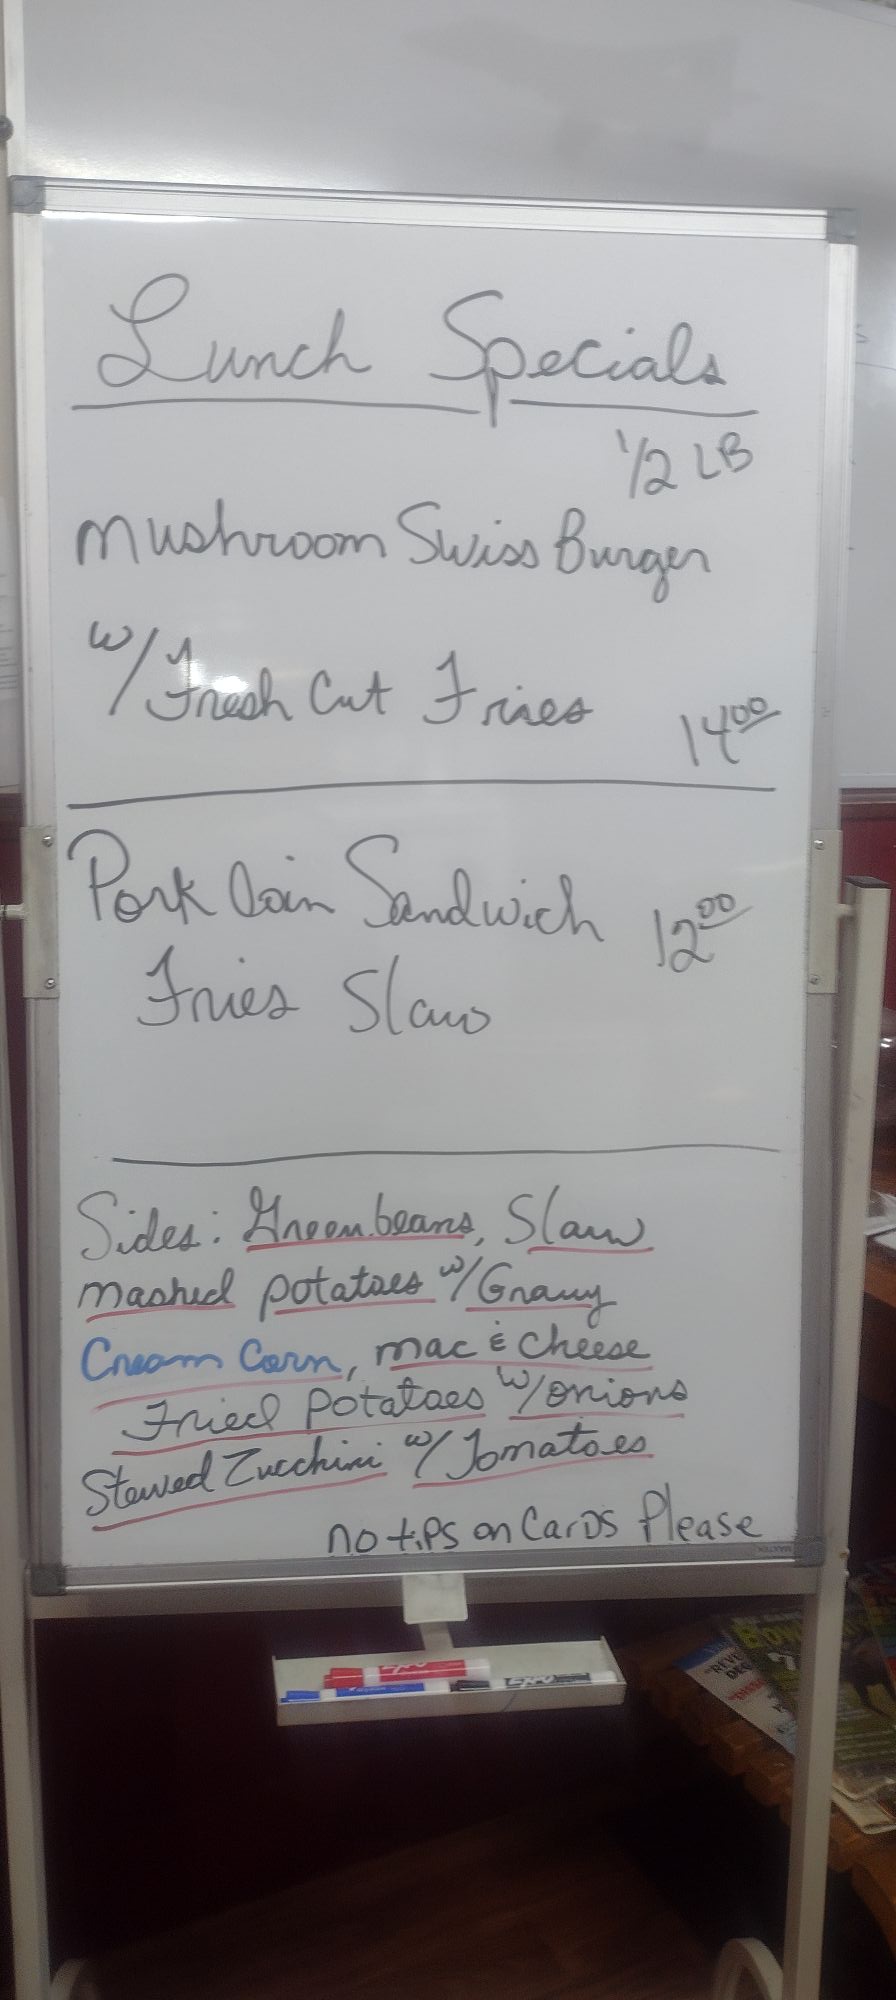 Lunch Specials
1/2 LB
Mushroom Swiss Burger
w/ Fresh Cut Fries 14.00
Pork Loin Sandwich 12.00
Fries Slaw
Sides: Green beans, Slaw
mashed potatoes w/ Gravy
Cream Corn, mac & cheese
Fried potatoes w/ onions
Stewed Zucchini w/ Tomatoes
no tips on Cards Please
EXPO